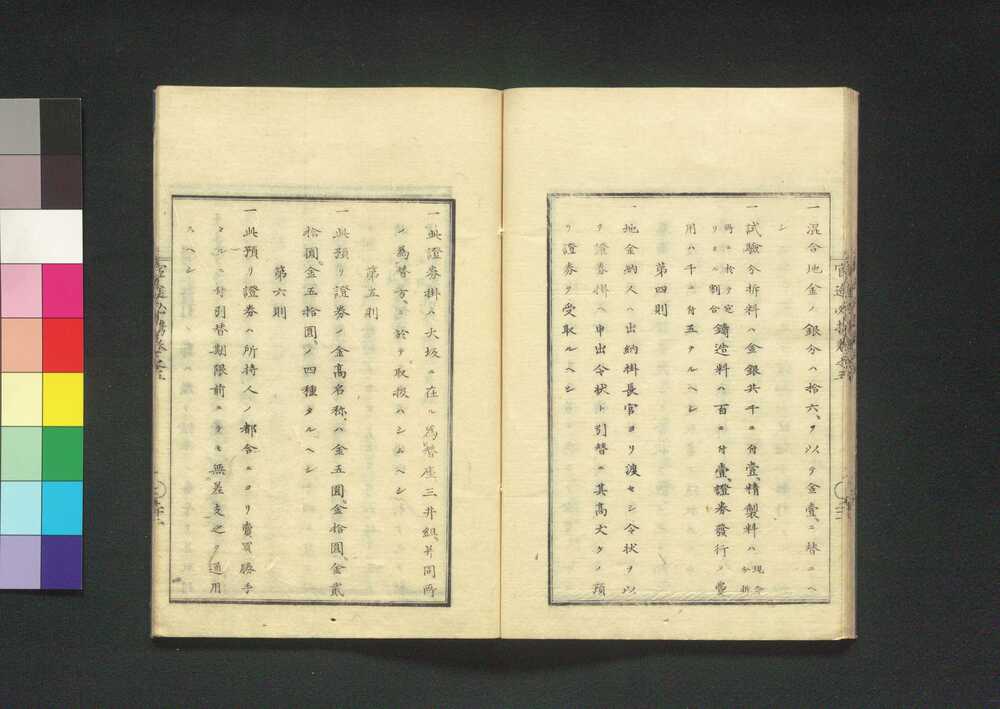 一混合地金ノ銀分ハ拾六、ヲ以テ金壹、ニ替ユヘ
シ
一試驗分析料ハ金銀共千ニ付壹、精製料ハ現今分析
所ニ於テ定リタル割合鑄造料ハ百ニ付壹、證券發行ノ費
用ハ千ニ付五タルヘシ
第四則
一地金納人ハ出納掛長官ヨリ渡セシ令状ヲ以
テ證券掛ヘ申出令状ト引替ニ其高丈ケノ預
リ證券ヲ受取ルヘシ
一此證券掛ハ大坂ニ在ル為替座三井組、并同所
為替方、ニ於テ取扱ハシムヘシ
第五則
一此預リ證券ノ金高名称、ハ金五圓、金拾圓、金貳
拾圓、金五拾圓、ノ四種タルヘシ
第六則
一此預リ證券ハ所持人ノ都合ニヨリ賣買勝手
タルニ付引替期限前ニテモ無差支之ヲ通用
スヘシ